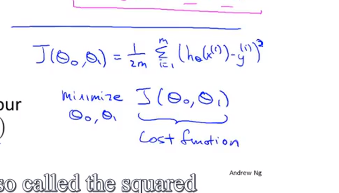 J(θ₀,θ₁) = 1/2m Σᵢ₌₁ᵐ (hθ(x⁽ⁱ⁾) - y⁽ⁱ⁾)²
our
minimize J(θ₀,θ₁)
θ₀,θ₁
)
Cost function
Andrew Ng
so called the squared